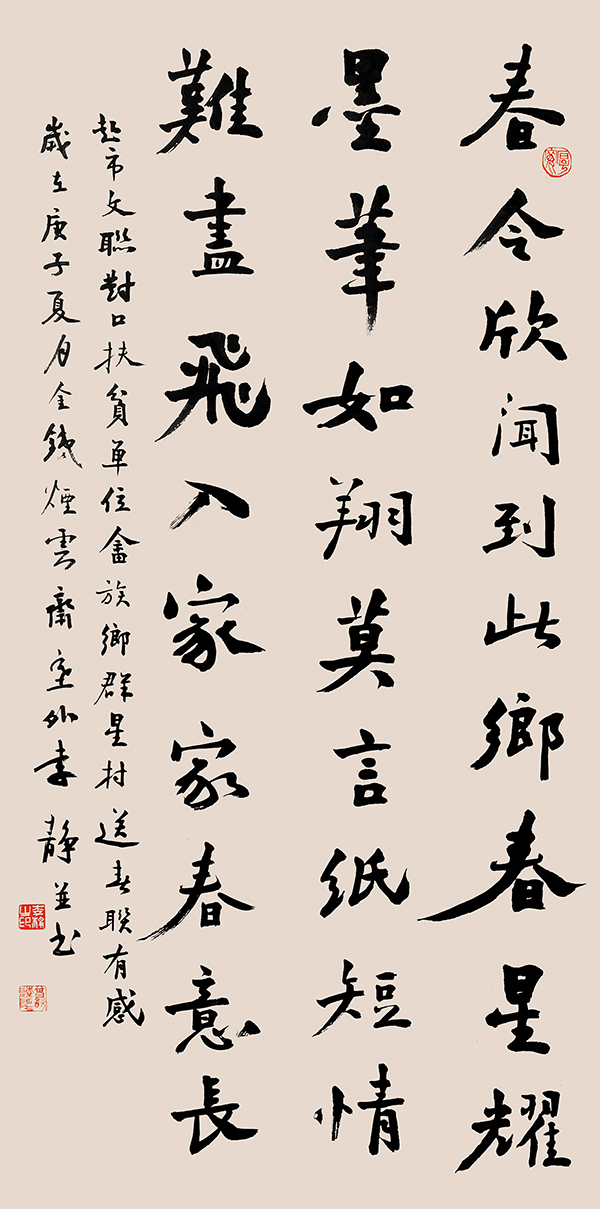 春令欣闻到此鄉春星耀
墨筆如翔莫言纸短情
難盡飛入家家春意長
赴市文聯對口扶貧單位畲族鄉群星村送春联有感
歲在庚子夏月金錢煙雲齋室外李靜並书